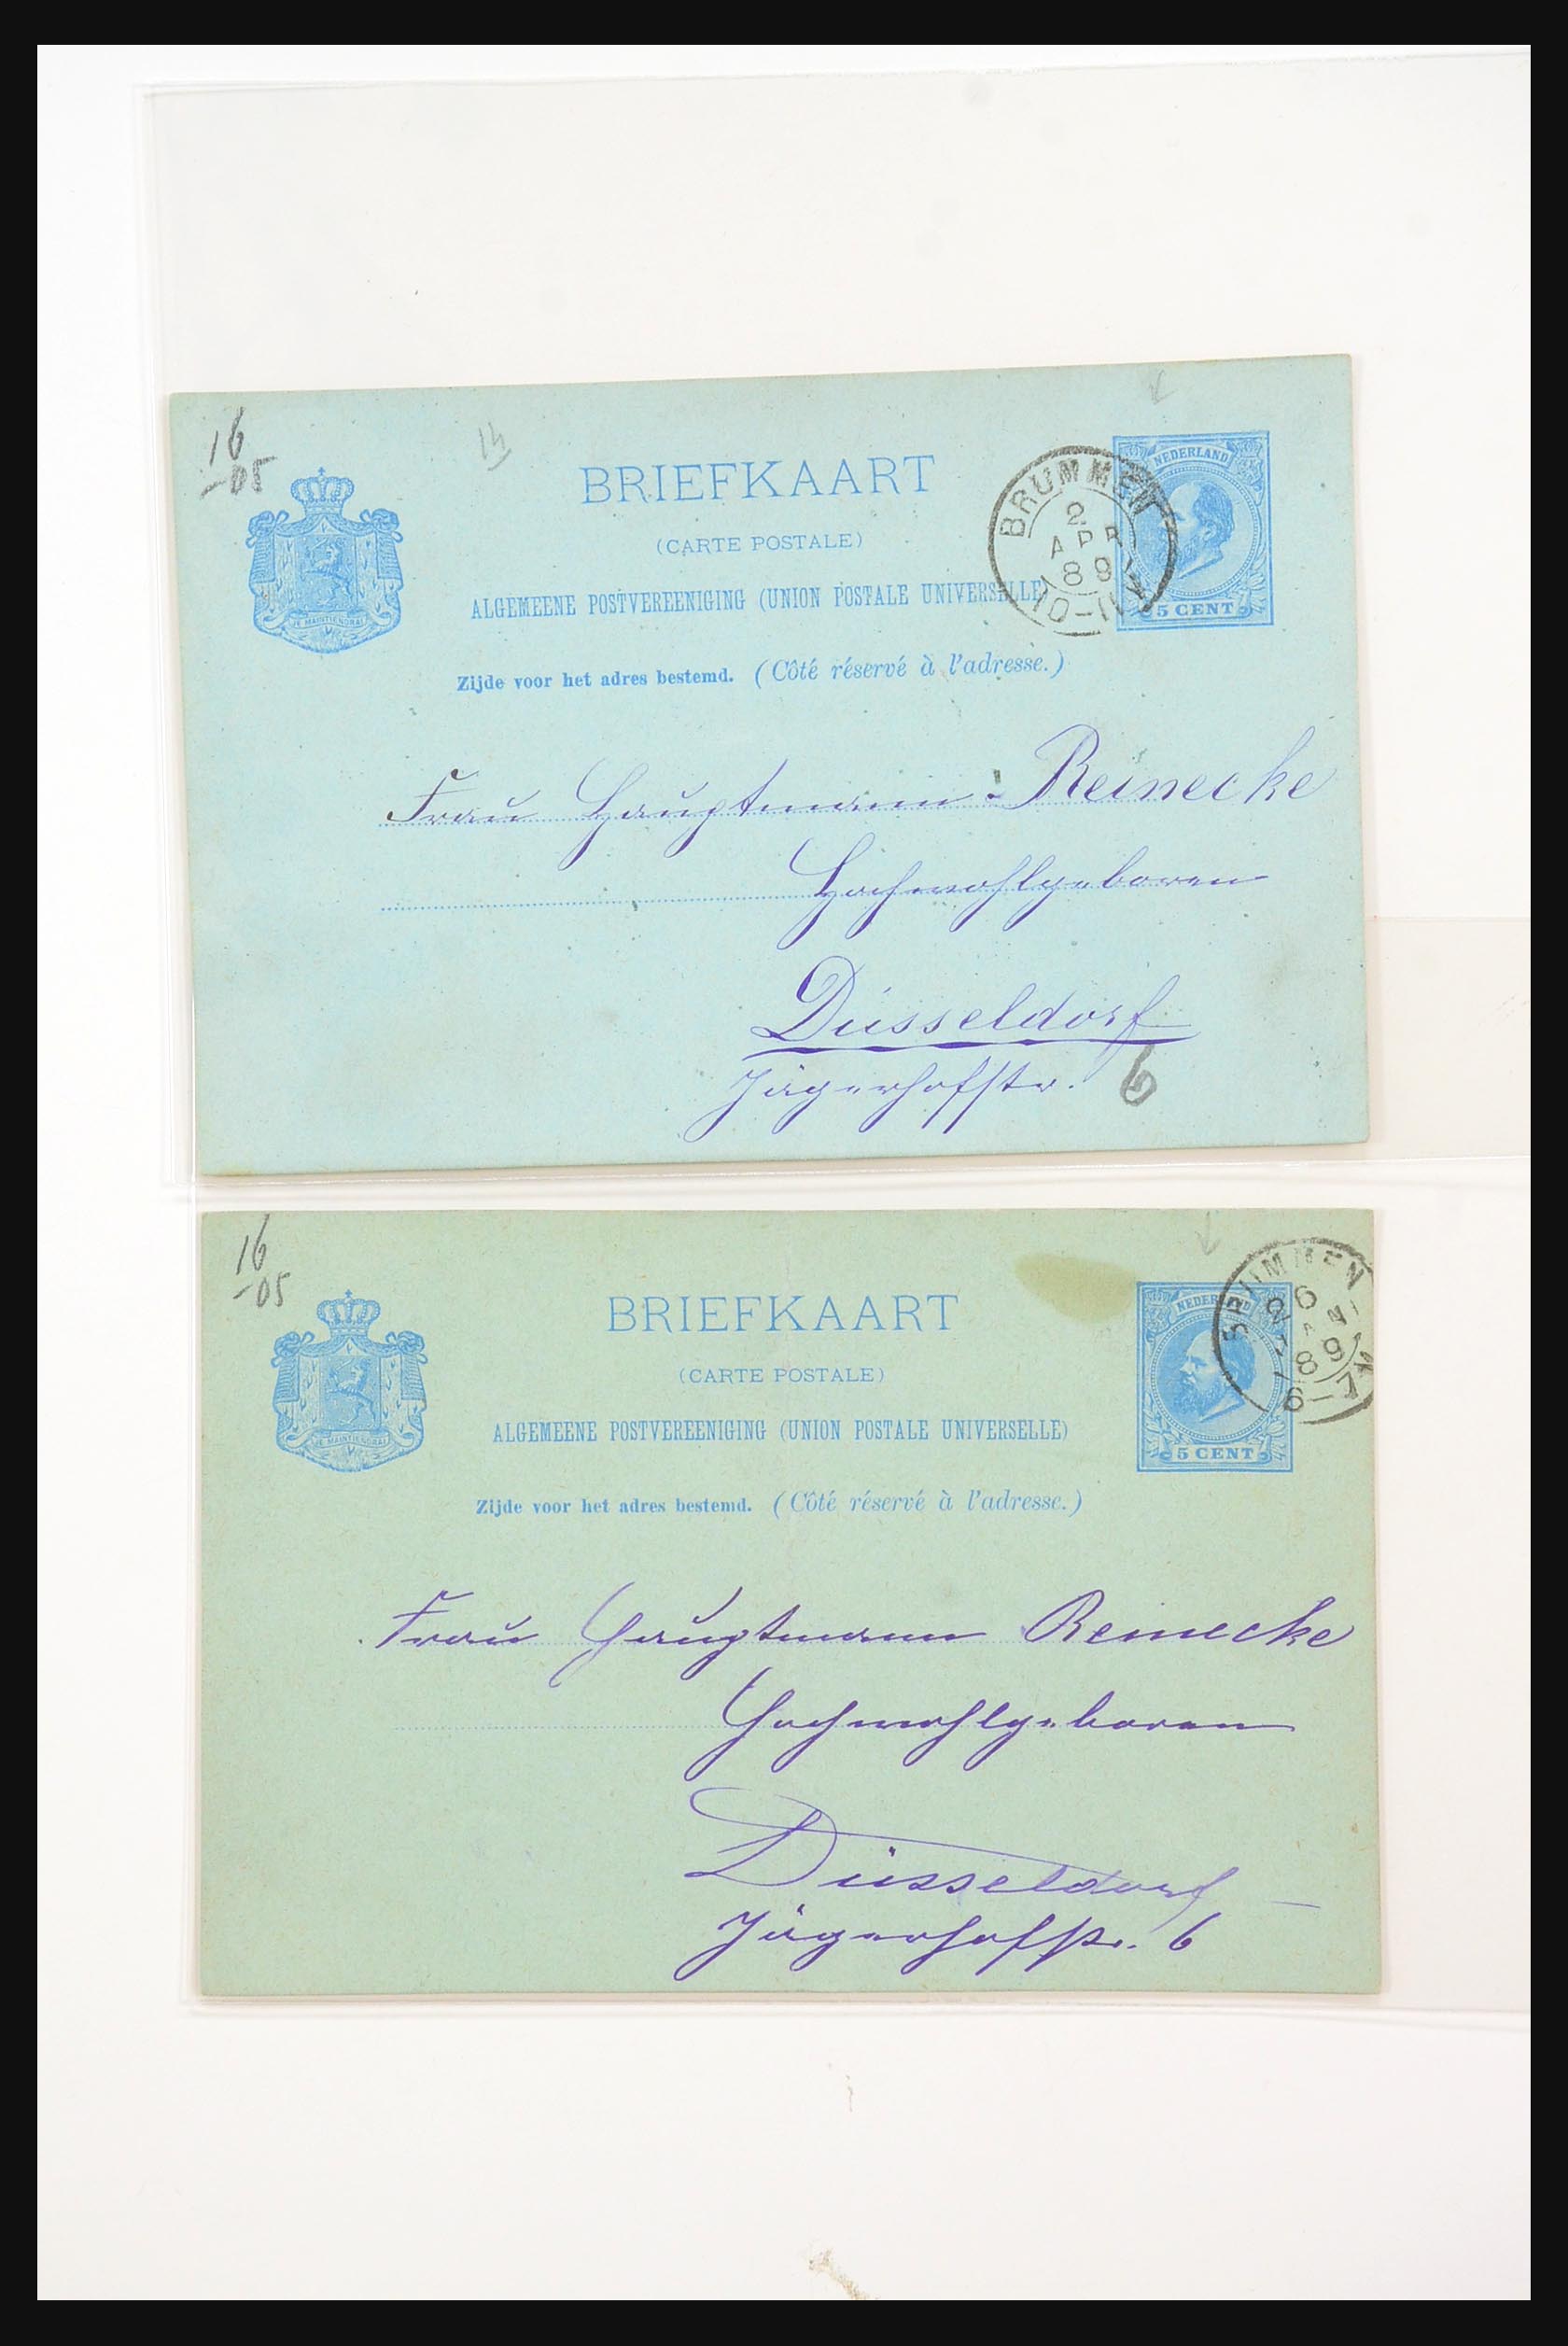 16
-05
BRIEFKAART
(CARTE POSTALE)
ALGEMEENE POSTVEREENIGING (UNION POSTALE UNIVERSELLE)
Zijde voor het adres bestemd. (Côté réservé à l'adresse.)
JE MAINTIENDRAI
NEDERLAND
5 CENT
BRUMMEN
2
APR
89
10-11V
Frau Hauptmann Reinecke
Hochwohlgeboren
Düsseldorf
Jägerhofstr. 6
16
-05
BRIEFKAART
(CARTE POSTALE)
ALGEMEENE POSTVEREENIGING (UNION POSTALE UNIVERSELLE)
Zijde voor het adres bestemd. (Côté réservé à l'adresse.)
JE MAINTIENDRAI
NEDERLAND
5 CENT
BRUMMEN
26
89
6-7N
Frau Hauptmann Reinecke
Hochwohlgeboren
Düsseldorf
Jägerhofstr. 6